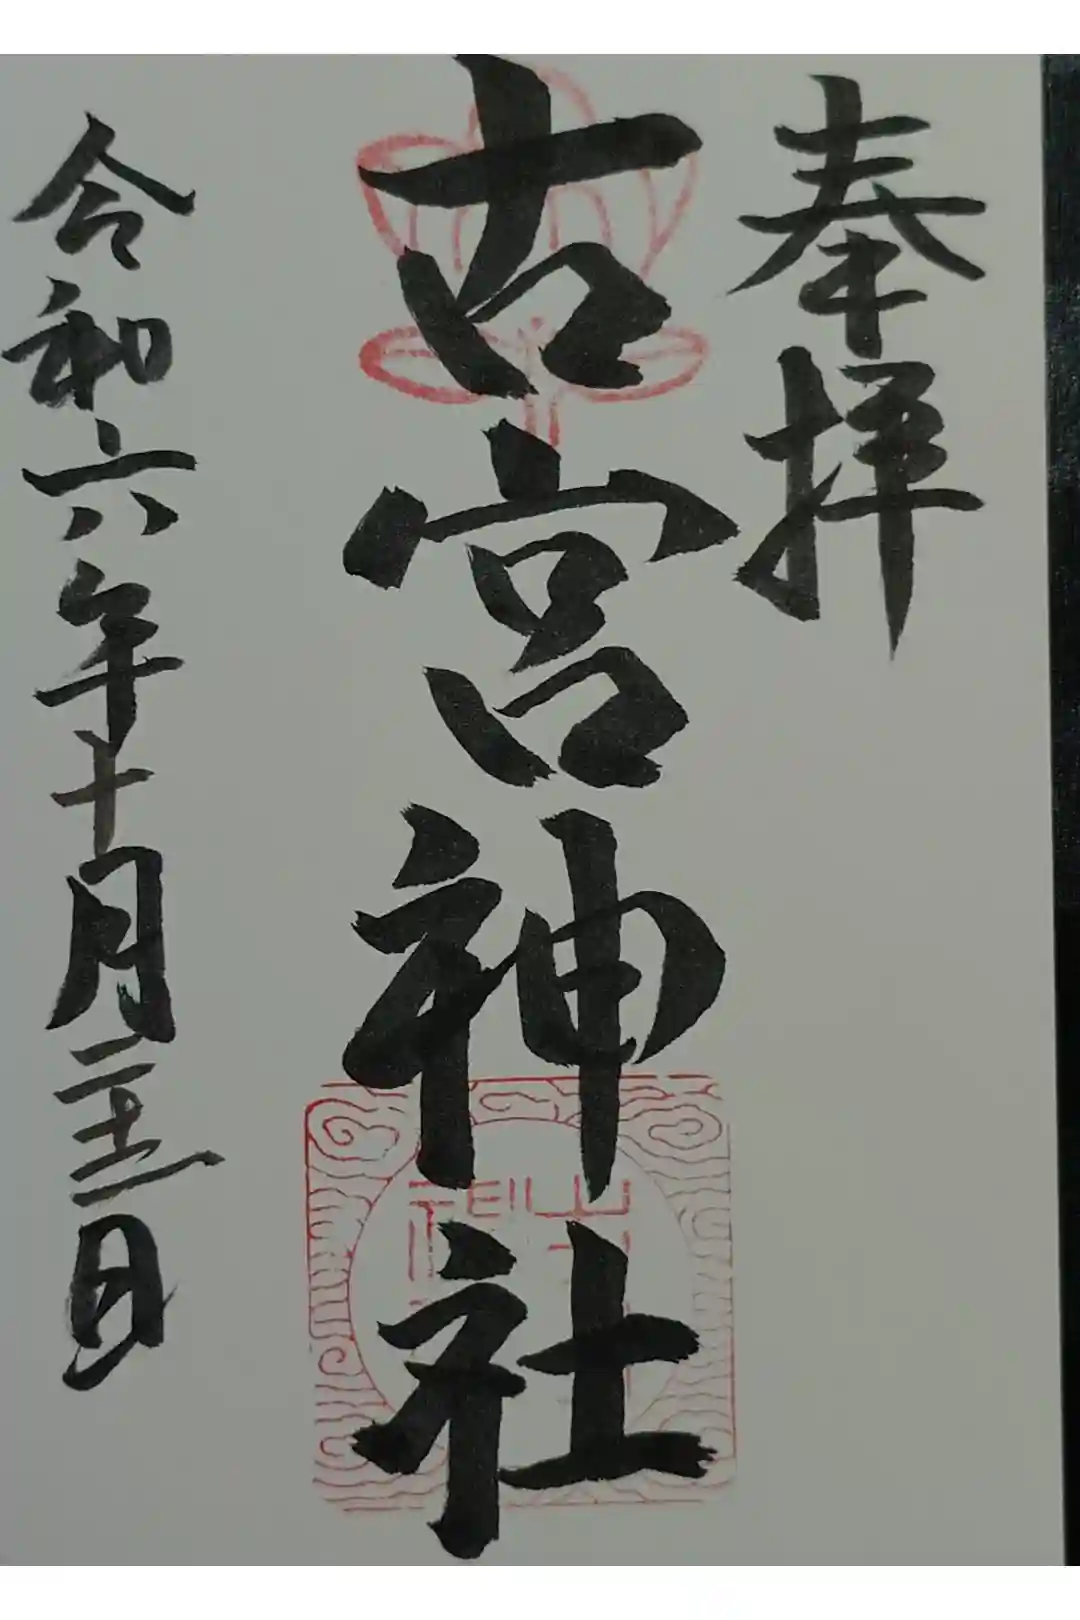 奉拝
古宮神社
令和六年十月二十三日